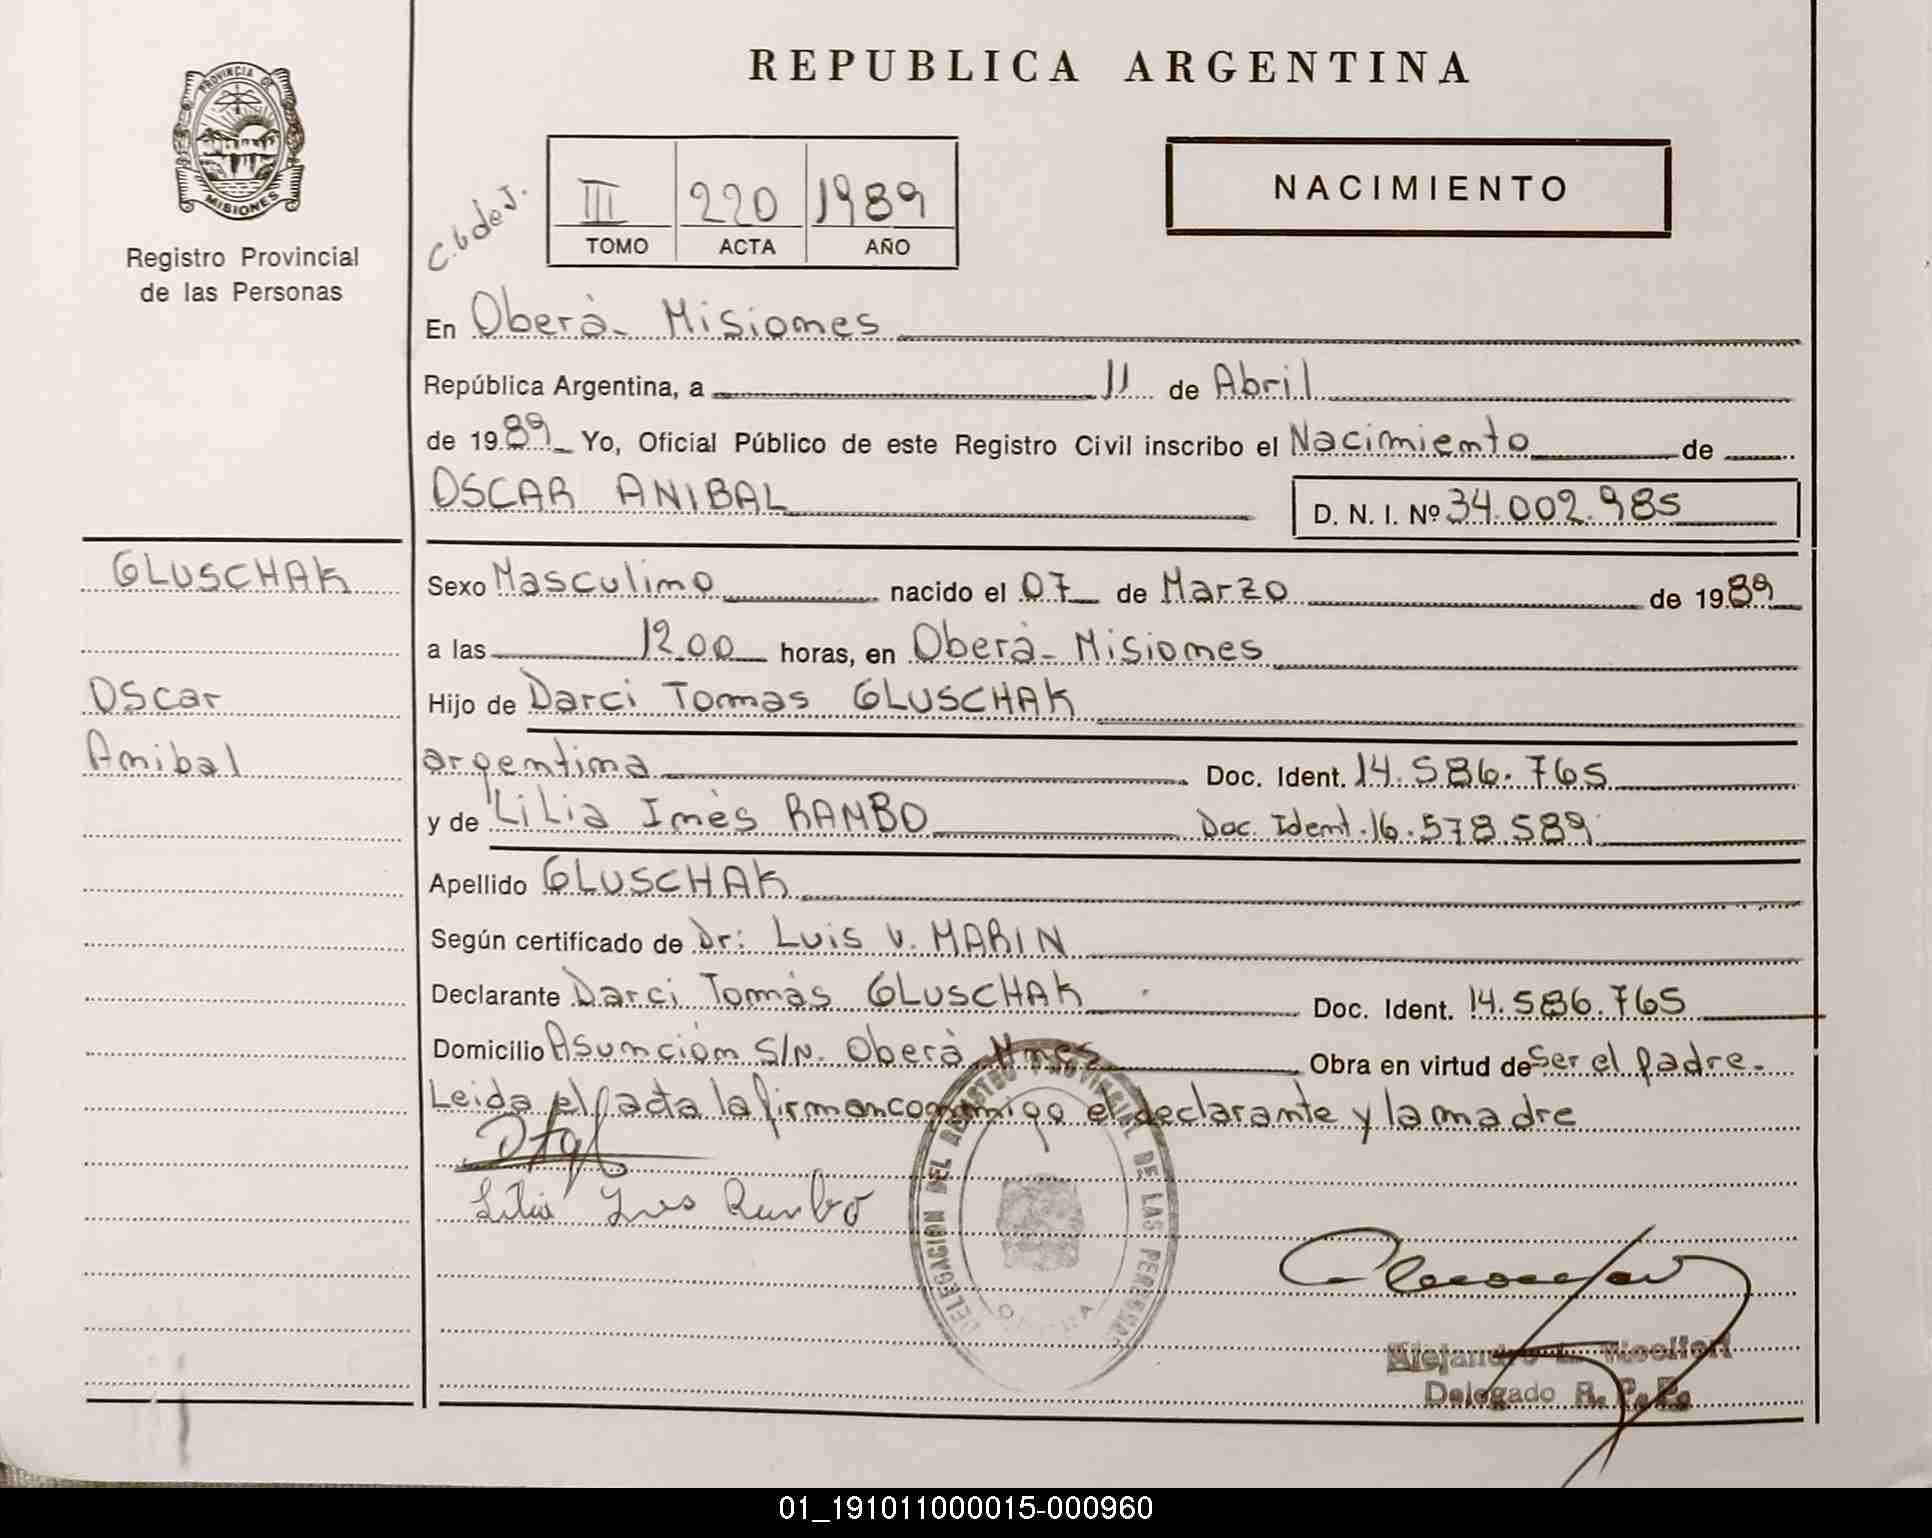 REPUBLICA ARGENTINA
PROVINCIA DE
MISIONES
Registro Provincial
de las Personas
C.b de J.
III 220 1989
TOMO ACTA AÑO
NACIMIENTO
En Oberà - Misiones
República Argentina, a 11 de Abril
de 1989 Yo, Oficial Público de este Registro Civil inscribo el Nacimiento de
OSCAR ANIBAL D. N. I. Nº 34.002.985
GLUSCHAK
Sexo Masculino nacido el 07 de Marzo de 1989
a las 12.00 horas, en Oberà - Misiones
Oscar
Hijo de Darci Tomas GLUSCHAK
Anibal
argentina Doc. Ident. 14.586.765
y de Lilia Inès RAMBO Doc. Ident. 16.578.589
Apellido GLUSCHAK
Según certificado de Dr: Luis V. MARIN
Declarante Darci Tomàs GLUSCHAK Doc. Ident. 14.586.765
Domicilio Asunciòn S/N. Oberà Mnes Obra en virtud de Ser el padre.
Leida el acta la firman conmigo el declarante y la madre
Lilia Ines Rambo
DELEGACION DEL REGISTRO PROVINCIAL DE LAS PERSONAS
Alejandro
Delegado R. P. P.
01_191011000015-000960